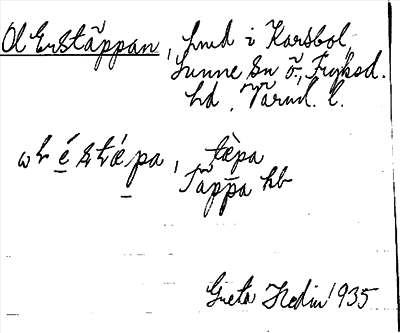 Ol Erstäppan, hmd i Karsbol,
Sunne sn ö., Fryksd.
hd, Värml. l.
täpa
Täppa hb
Greta Hedin 1935